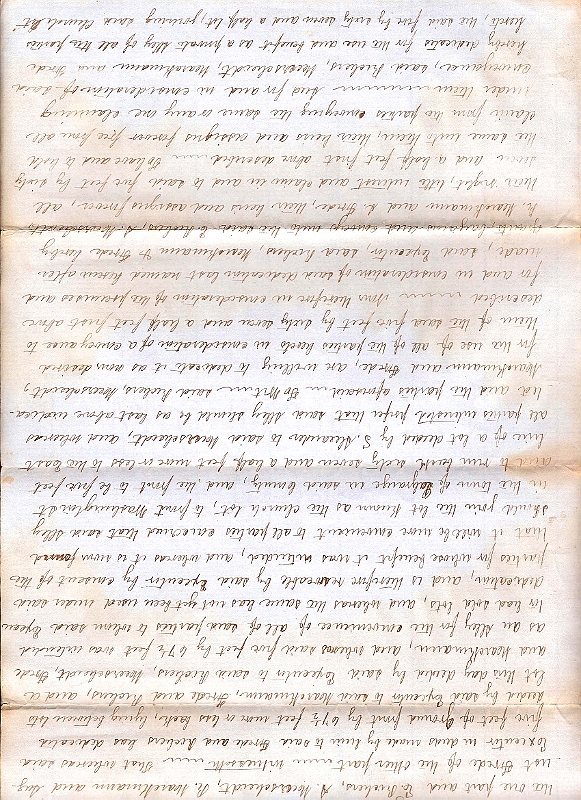 the one part and A. Meerscheidt, N. Marschmann and Aug-
ust Frede of the other part Witnesseth That whereas said
Executor in deeds made by him to said Frede and has dedicated
five feet of Ground front by 67½ feet more or less back, lying between lots
deeded by said Executor to said Marschmann, Frede and and a
lot this day deeded by said Executor to said Meerscheidt, Frede
and Marschmann, and whereas said five feet by 67½ feet was intended
as an Alley for the use and convenience of all of said parties to whom said Execu
tor had sold lots, and whereas the same has not yet been used under said
dedication, and is therefore revocable by said Executor by consent of the
parties for whose benefit it was intended, and whereas it is now found
that it will be more convenient to all parties concerned that said Alley
should join the lot known as the church lot, to front Washington St
in the town of LaGrange in said County, and the front to be five feet
and to run back sixty seven and a half feet more or less to the East
line of a lot deeded by S. Alexander to said Meerscheidt, and, whereas
all parties interested prefer that said Alley should be as last above indica-
ted and the parties aforesaid to wit said Meerscheidt,
Marschmann and Frede, are willing to dedicate it as now desired
for the use of all of the parties hereto in consideration of a conveyance to
them of the said five feet by sixty seven and a half feet first above
described Now therefore in consideration of the premises and
for and in consideration of said dedication last named herein after
made, said Executor, said Marschmann & Frede hereby
and conveys unto the said A. Meerscheidt,
N. Marschmann and A. Frede, their heirs and assigns forever, all
their right, title, interest and claim in and to said five feet by sixty
seven and a half feet first above described To have and to hold
the same unto them, their heirs and assigns forever free from all
claim from the parties conveying the same or any one claiming
under them And for and in consideration of said
conveyance, said Meerscheidt, Marschmann and Frede
hereby dedicates for the use and benefit as a private Alley of all the parties
hereto, the said five by sixty seven and a half lot, joining said Church lot